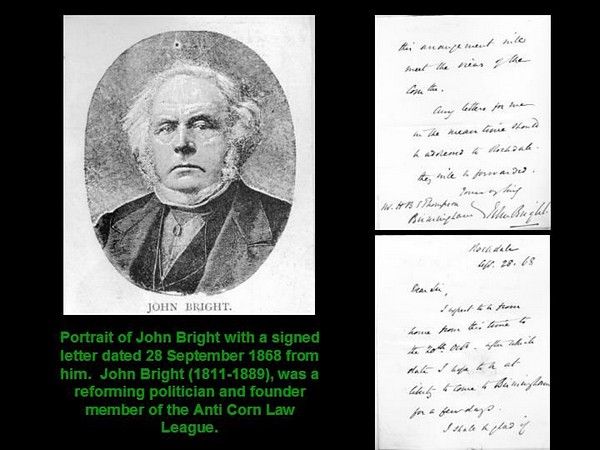 JOHN BRIGHT.
Portrait of John Bright with a signed
letter dated 28 September 1868 from
him. John Bright (1811-1889), was a
reforming politician and founder
member of the Anti Corn Law
League.
this arrangement will
meet the views of the
Comttee.
Any letters for me
in the meantime should
be addressed to Rochdale.
they will be forwarded.
Yours
Mr. H B S Thompson
Birmingham
John Bright
Rochdale
Sept. 28. 68
Dear Sir,
I expect to be from
home from this time to
the 20th Octr. after which
date I hope to be at
liberty to come to Birmingham
for a few days.
I shall be glad if